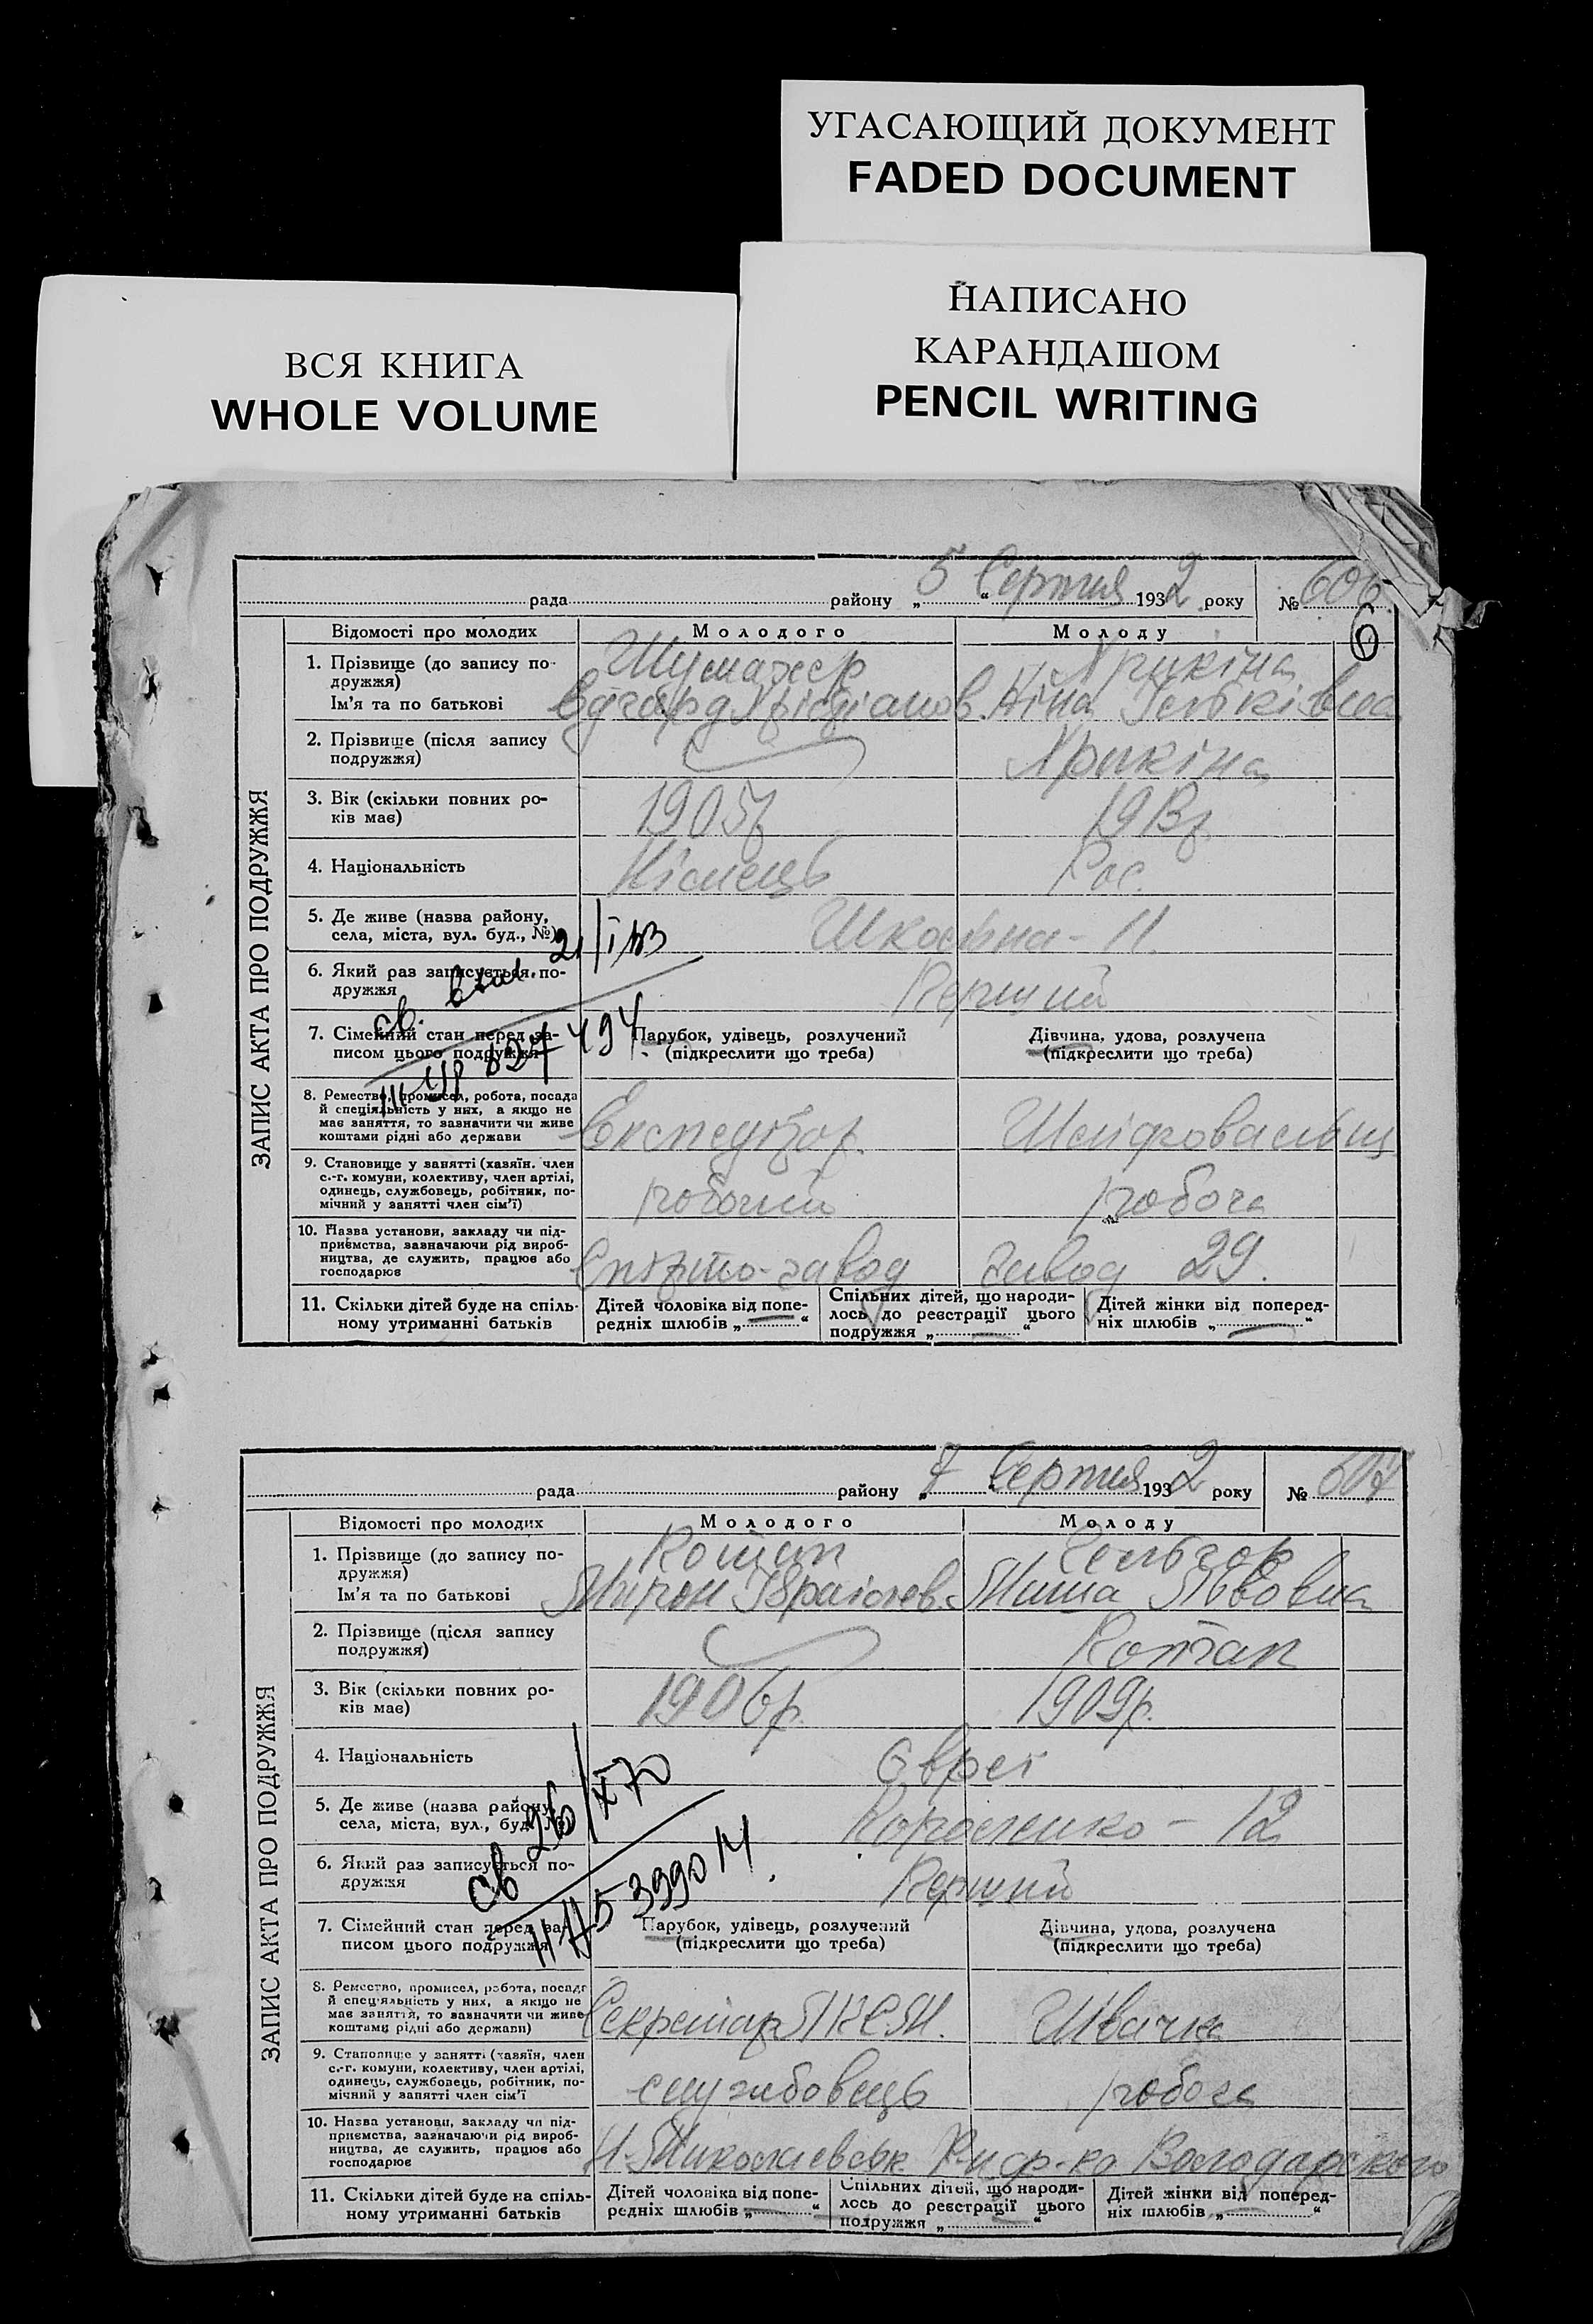 УГАСАЮЩИЙ ДОКУМЕНТ
FADED DOCUMENT
НАПИСАНО
КАРАНДАШОМ
PENCIL WRITING
ВСЯ КНИГА
WHOLE VOLUME
рада района „5“ Серпня 1932 року № 606
6
ЗАПИС АКТА ПРО ПОДРУЖЖЯ
Відомості про молодих Молодого Молоду
1. Прізвище (до запису по-
дружжя)
Ім'я та по батькові
Шумахер
Нина
2. Прізвище (після запису
подружжя)
3. Вік (скільки повних ро-
ків має)
1905р
4. Національність Німець Рос.
5. Де живе (назва району,
села, міста, вул. буд., №)
Шкільна - 11.
6. Який раз записується по-
дружжя
Перший
7. Сімейний стан перед за-
писом цього подружжя
Парубок, удівець, розлучений
(підкреслити що треба)
Дівчина, удова, розлучена
(підкреслити що треба)
8. Ремество, промисел, робота, посада
й спеціяльність у них, а якщо не
має заняття, то зазначити чи живе
коштами рідні або держави
Експедітор.
9. Становище у занятті (хазяїн. член
с.-г. комуни, колективу, член артілі,
одинець, службовець, робітник, по-
мічний у занятті член сім'ї)
робочий робоча
10. Назва установи, закладу чи під-
приємства, зазначаючи рід вироб-
ництва, де служить, працює або
господарює
завод завод 29.
11. Скільки дітей буде на спіль-
ному утриманні батьків
Дітей чоловіка від попе-
редніх шлюбів „ “
Спільних дітей, що народи-
лось до реєстрації цього
подружжя „ “
Дітей жінки від поперед-
ніх шлюбів „ “
рада району „7 Серпня 1932 року № 607
ЗАПИС АКТА ПРО ПОДРУЖЖЯ
Відомості про молодих Молодого Молоду
1. Прізвище (до запису по-
дружжя)
Ім'я та по батькові
Мирон Львовна
2. Прізвище (після запису
подружжя)
3. Вік (скільки повних ро-
ків має)
1906р. 1909р.
4. Національність Євреї
5. Де живе (назва району,
села, міста, вул., буд. №)
Короленко - 12
6. Який раз записується по-
дружжя
Перший
7. Сімейний стан перед за-
писом цього подружжя
Парубок, удівець, розлучений
(підкреслити що треба)
Дівчина, удова, розлучена
(підкреслити що треба)
8. Ремество, промисел, робота, посада
й спец'яльність у них, а якщо не
має заняття, то зазначити чи живе
коштами рідні або держави)
Секретар Швачка
9. Становище у занятті (хазяїн, член
с.-г. комуни, колективу, член артілі,
одинець, службовець, робітник, по-
мічний у занятті член сім'ї
службовець робоча
10. Назва установи, закладу чи під-
приємства, зазначаючи рід вироб-
ництва, де служить, працює або
господарює
Володарского
11. Скільки дітей буде на спіль-
ному утриманні батьків
Дітей чоловіка від попе-
редніх шлюбів „ “
Спільних дітей, що народи-
лось до реєстрації цього
подружжя „ “
Дітей жінки від поперед-
ніх шлюбів „ “